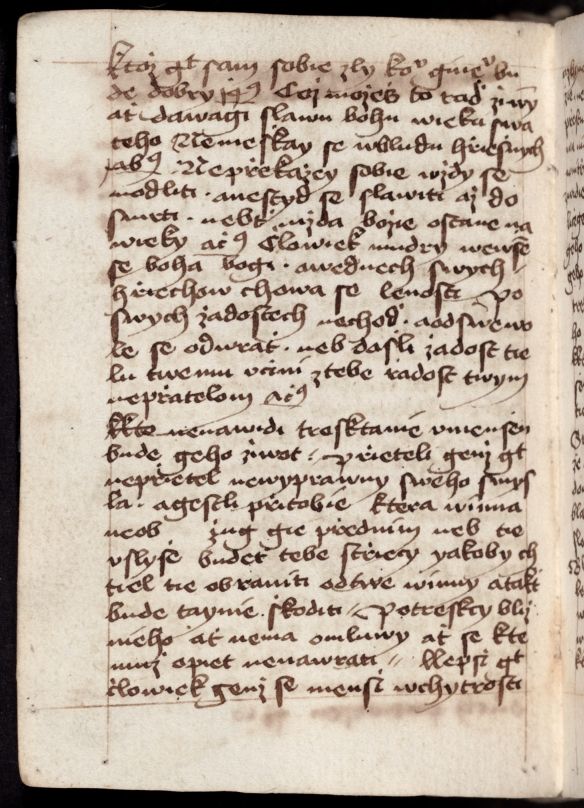 Ktoz gt sam sobie zly koᵛ ginieᵛ bu
de dobry Coz mozes to tad ziwy
at dawagi slawu bohu wieku swa
teho Nemeskay se wbludu hriesnych
Neprekazey sobie wzdy se
modliti . anestyd se slawiti az do
smrti . nebt mzda bozie ostane na
wieky Clowiek mudry wewse
se boha bogi . awednech swych
hriechow chowa se lenosti Po
swych zadostech nechod . aodswewo
le se odwrat . neb dasli zadost tie
lu twemu vcini ztebe radost twym
nepratelom
Kto nenawidi tresktanie vmensen
bude geho ziwot . Prieteli genz gt
neprietel newyprawny sweho smys
la . agestli pritobie ktera winna
neob zug gie przednim neb tie
vslyse budet tebe striecy yakoby ch
tiel tie obraniti odtwe winny atakt
bude taynie skoditi Potresktcy bliz
nieho at nema omluwy at se kte
muz opiet nenawrati lepsi gt
clowiek genz se mensi wchytrosti